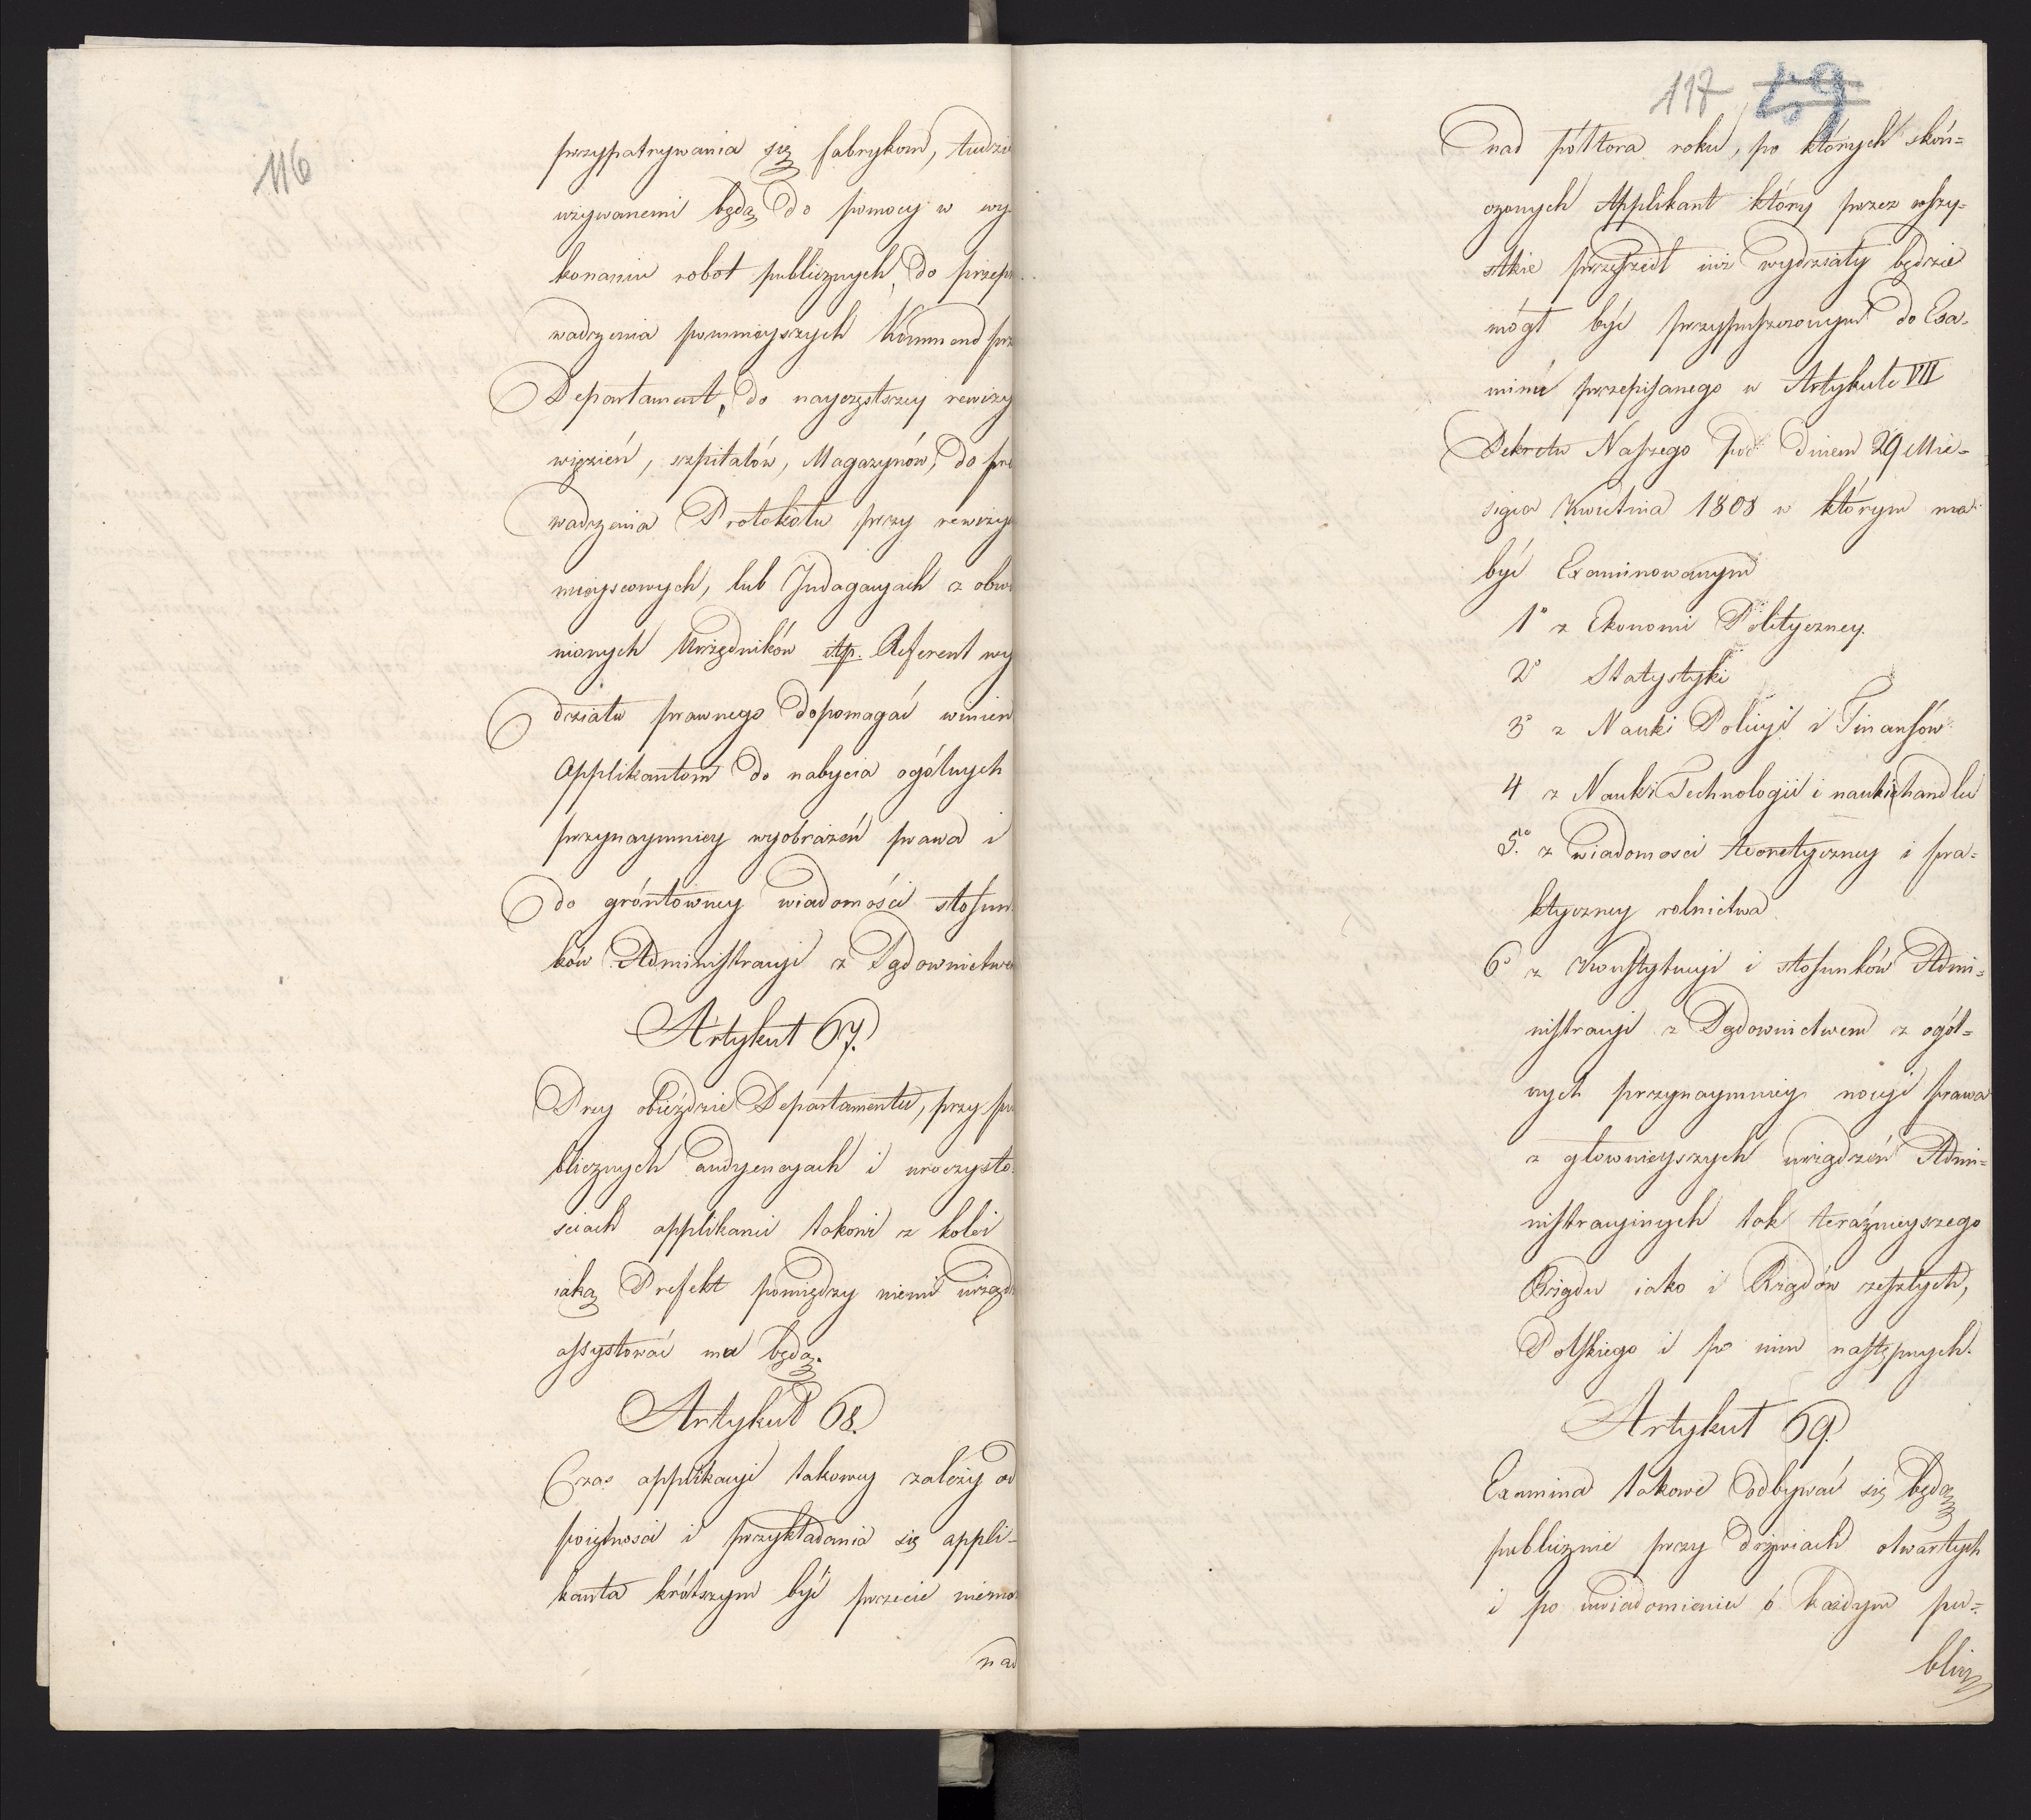 116
przypatrywania się fabrykom, tudzi
używanemi będą do pomocy w wy-
konaniu robot publicznych, do przep
wadzenia pomnieyszych Kommend prz
Departament, do nayczęstszey rewizy
więzień, szpitalów, Magazynów, do pro
wadzenia Protokołu przy rewizy
mieyscowych, lub Indagacyach z obwi
nionych Urzędników itp. Referent wy
działu prawnego dopomagać winien
Applikantom do nabycia ogólnych
przynaymniey wyobrażeń prawa i
do gróntowney wiadomości stosun
ków Administracyi z Sądownictwe
Artykuł 67.
Przy obieździe Departamentu, przy pu
blicznych audyencyach i uroczysto
sciach applikanci takowi z kolei
iaką Prefekt pomiędzy niemi urządz
assystować mu będą.
Artykuł 68.
Czas applikacyi takowey zależy od
poiętności i przykładania się appli-
kanta krótszym być przecie niemo
nad
117 59
nad półtora roku, po których skoń=
czonych Applikant który przez wszy=
stkie przeszedł iuż wydziały będzie
mógł być przypuszczonym do Exa-
minu przepisanego w Artykule VII
Dekretu Naszego pod dniem 29 Mie=
siąca Kwietnia 1808 w którym ma
być Examinowanym
1° z Ekonomi Polityczney.
2° Statystyki
3° z Nauki Policyi i Finansów
4 z Nauki Technologii i nauki handlu
5.° z wiadomosci teoretyczney i pra=
ktyczney rolnictwa
6° z Konstytucyi i stosunków Admi=
nistracyi z Sądownictwem z ogól=
nych przynaymniey nocyi prawa
z głownieyszych urządzeń Admi=
nistracyinych tak teraźnieyszego
Rządu iako i Rządów zeszłych,
Polskiego i po nim następnych.
Artykuł 69.
Examina takowe odbywać się będą
publicznie przy drzwiach otwartych
i po uwiadomieniu o każdym pu=
blicz